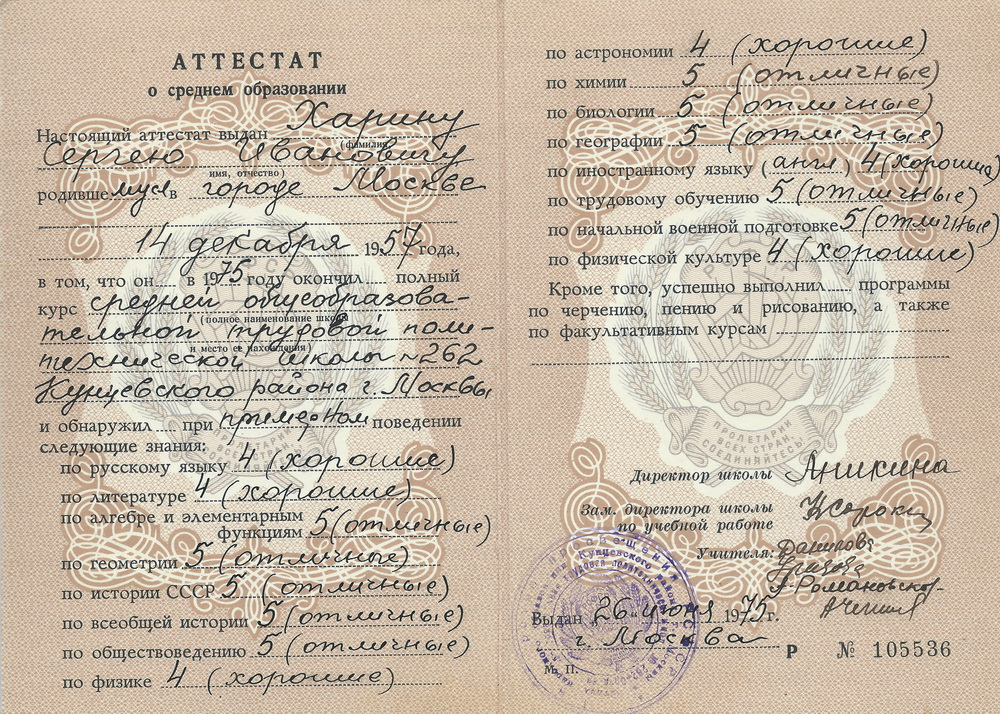 АТТЕСТАТ
о среднем образовании
Настоящий аттестат выдан Харину
(фамилия)
Сергею Ивановичу
имя, отчество)
родившемуся в городе Москве
14 декабря 1957 года,
в том, что он в 1975 году окончил полный
курс средней общеобразова-
(полное наименование школы
тельной трудовой поли-
и место ее нахождения)
технической школы №262
Кунцевского района г. Москвы
и обнаружил при примерном поведении
следующие знания:
по русскому языку 4 (хорошие)
по литературе 4 (хорошие)
по алгебре и элементарным
функциям 5 (отличные)
по геометрии 5 (отличные)
по истории СССР 5 (отличные)
по всеобщей истории 5 (отличные)
по обществоведению 5 (отличные)
по физике 4 (хорошие)
по астрономии 4 (хорошие)
по химии 5 (отличные)
по биологии 5 (отличные)
по географии 5 (отличные)
по иностранному языку (англ) 4 (хорошие)
по трудовому обучению 5 (отличные)
по начальной военной подготовке 5 (отличные)
по физической культуре 4 (хорошие)
Кроме того, успешно выполнил программы
по черчению, пению и рисованию, а также
по факультативным курсам
ПРОЛЕТАРИИ
ВСЕХ СТРАН,
СОЕДИНЯЙТЕСЬ
Директор школы Аникина
Зам. директора школы
по учебной работе
Учителя: Данилова
Романовская
Выдан „26“ июня 1975г.
г. Москва
М. П.
Р № 105536